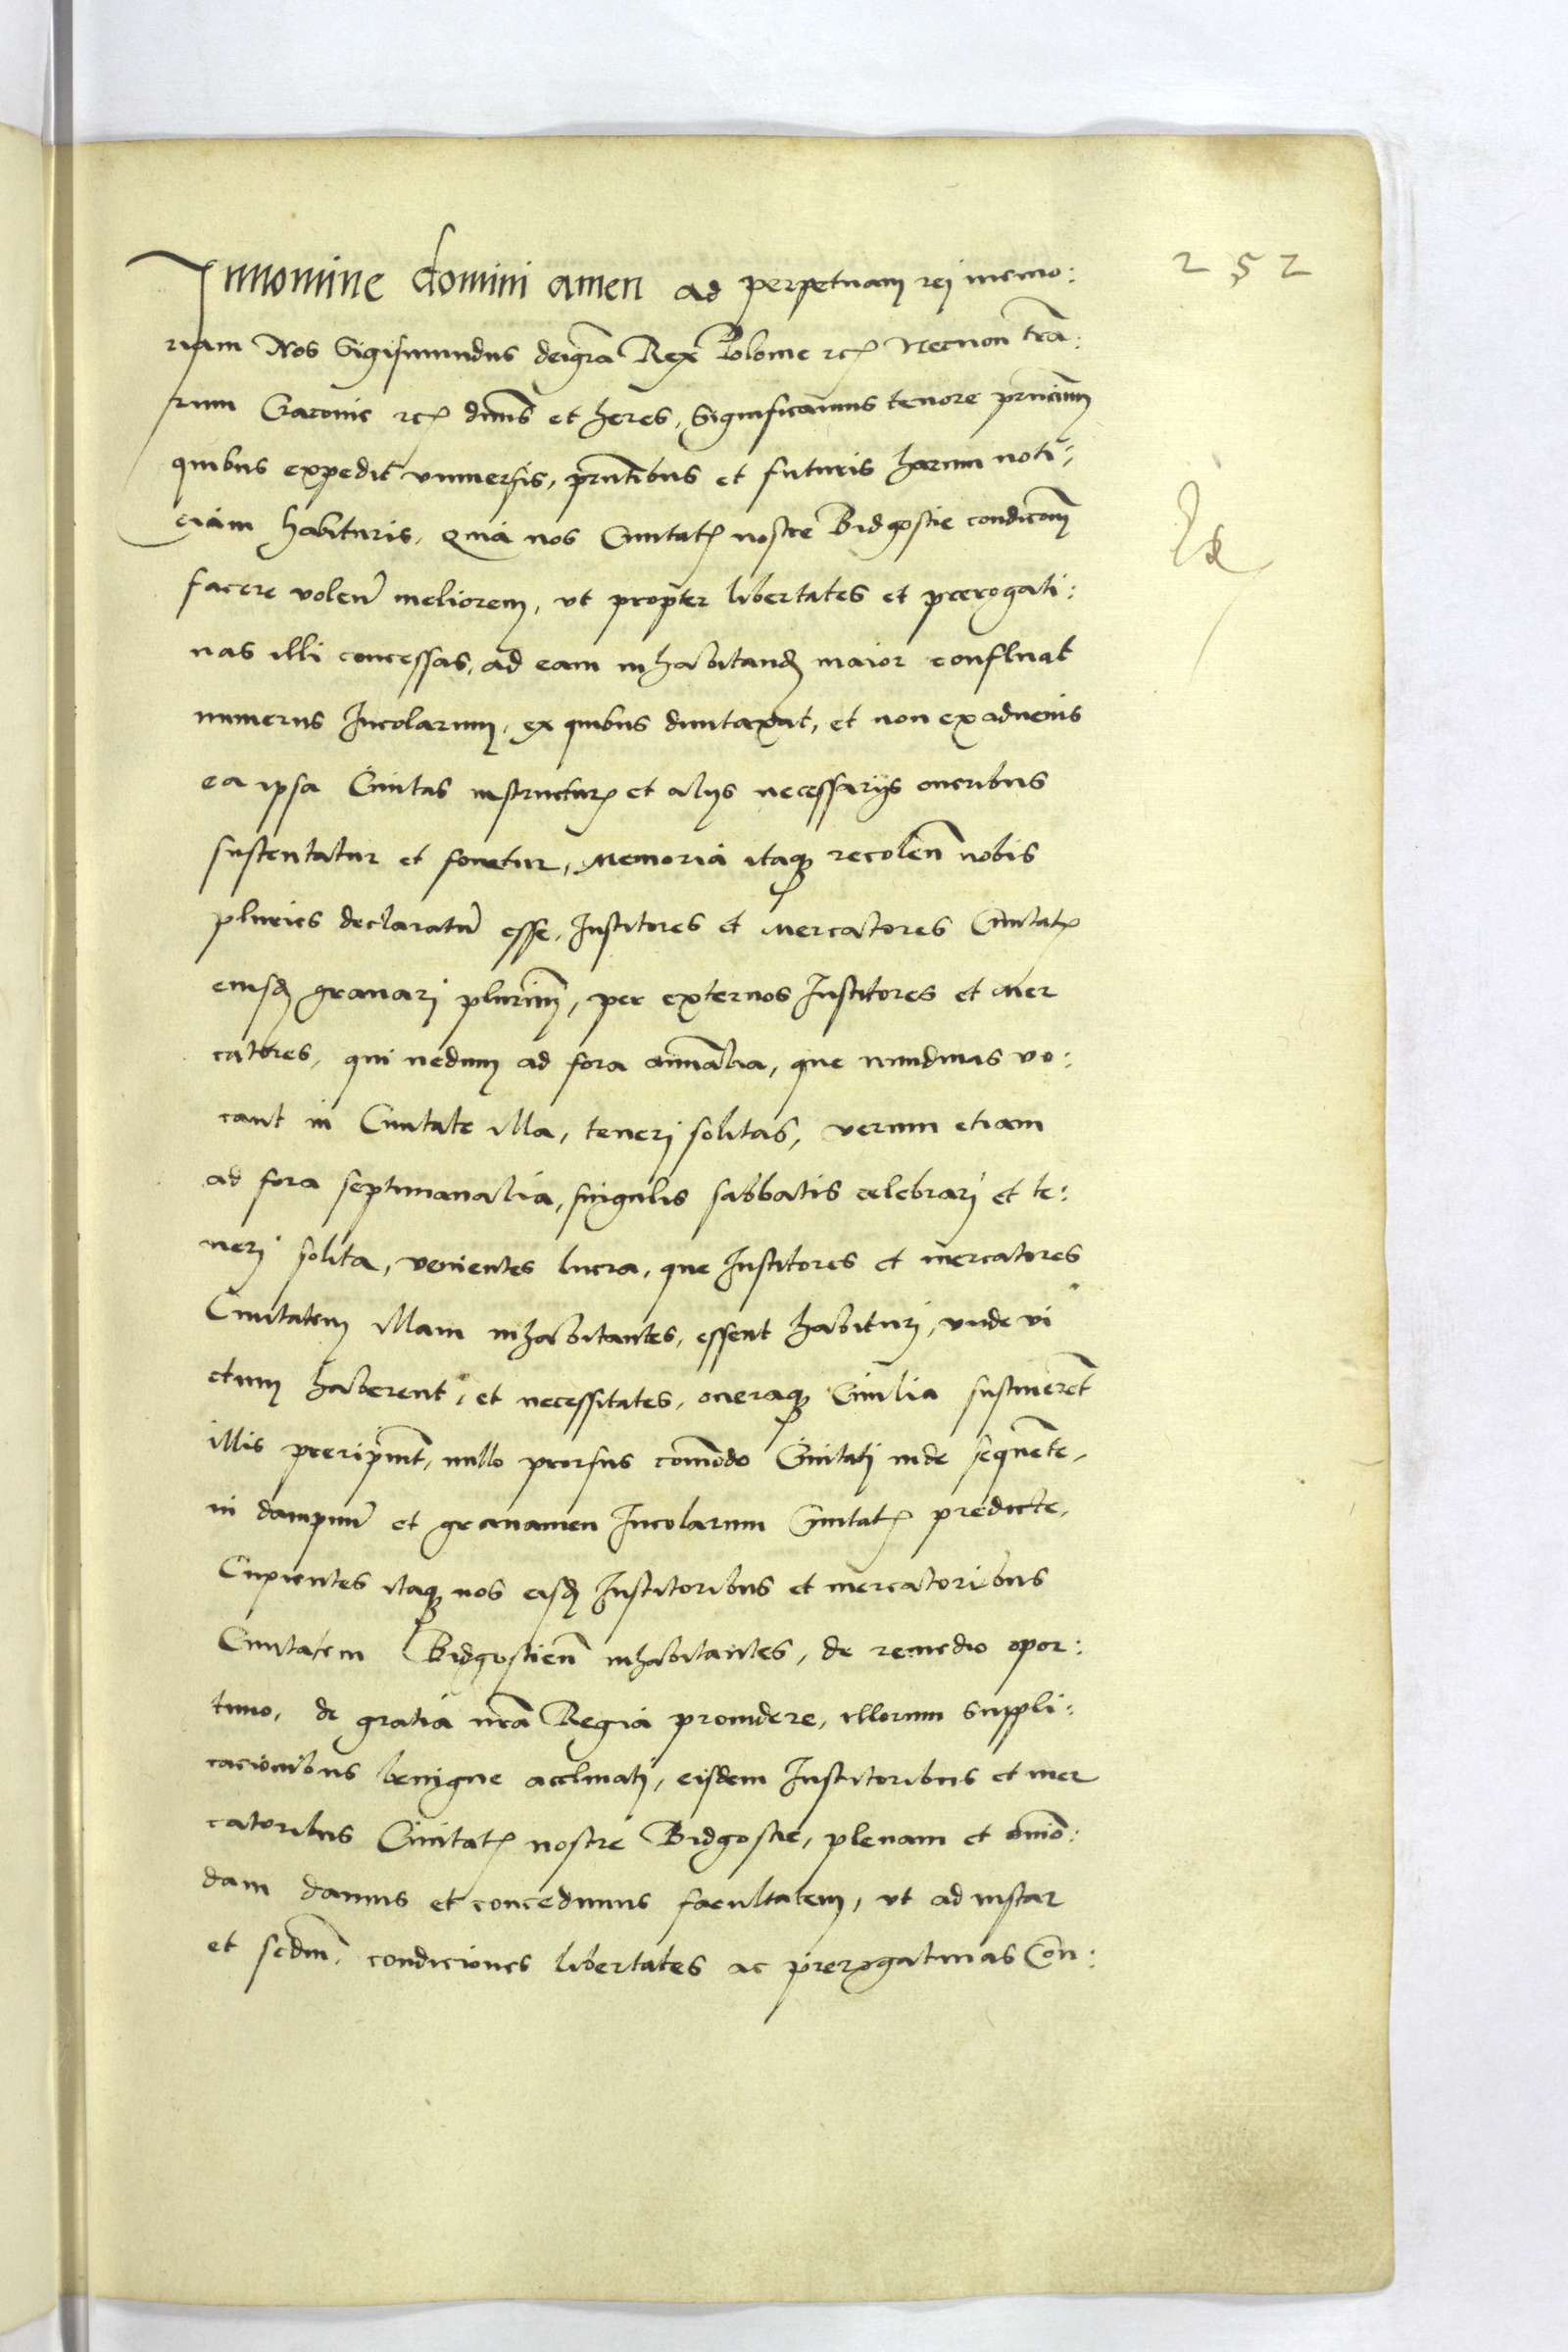 252
Innomine domini amen ad perpetuam rej memo:
riam Nos Sigismundus deigra Rex Polonie rc Necnon tra:
rum Cracovie rc dnus et heres, Significamus tenore prncium
quibus expedit vniuersis, prntibus et futuris harum noti:
ciam habituris, Quia nos Ciuitatis nostre Bidgostie condicom
facere volen meliorem, vt propter libertates et prerogati:
uas illi concessas, ad eam inhabitand maior confluat
numerus Incolarum, ex quibus duntaxat, et non ex aduenis
ea ipsa Ciuitas instructur et alijs necessarijs oneribus
sustentatur et fouetur, Memoria itaq recolen nobis
pluries declaratu esse, Institores et Mercatores Ciuitatis
eiusd grauarj plurimu, per externos Institores et Mer
catores, qui nedum ad fora annalia, que nundinas vo:
cant in Ciuitate illa, tenerj solitas, verum etiam
ad fora septimanalia, singulis sabbatis celebrarj et te:
nerj solita, venientes lucra, que Institores et mercatores
Ciuitatem illam inhabitantes, essent habiturj, vnde vi
ctum haberent, et necessitates, oneraq Ciuilia sustineret
illis preripiunt, nullo prorsus comodo Ciuitatj inde sequente,
in dampnu et grauamen Incolarum Ciuitatis predicte,
Cupientes itaq nos eisd Institoribus et mercatoribus
Ciuitatem Bidgostien inhabitantes, de remedio opor:
tuno, de gratia nra Regia prouidere, illorum suppli:
cacionibus benigne acclinatj, eisdem Institoribus et mer
catoribus Ciuitatis nostre Bidgostie, plenam et omio:
dam damus et concedimus facultatem, vt ad instar
et scdm condiciones libertates ac prerogatiuas Con: